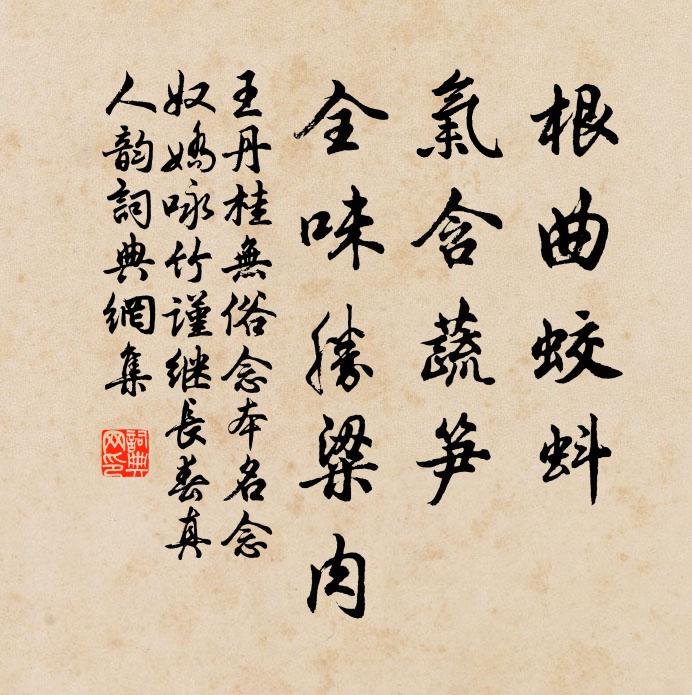 根曲蛟蚪
氣含蔬笋
全味勝粱肉
王丹桂無俗念本名念
奴嬌咏竹謹继長春真
人韵詞典網集
詞典
网印